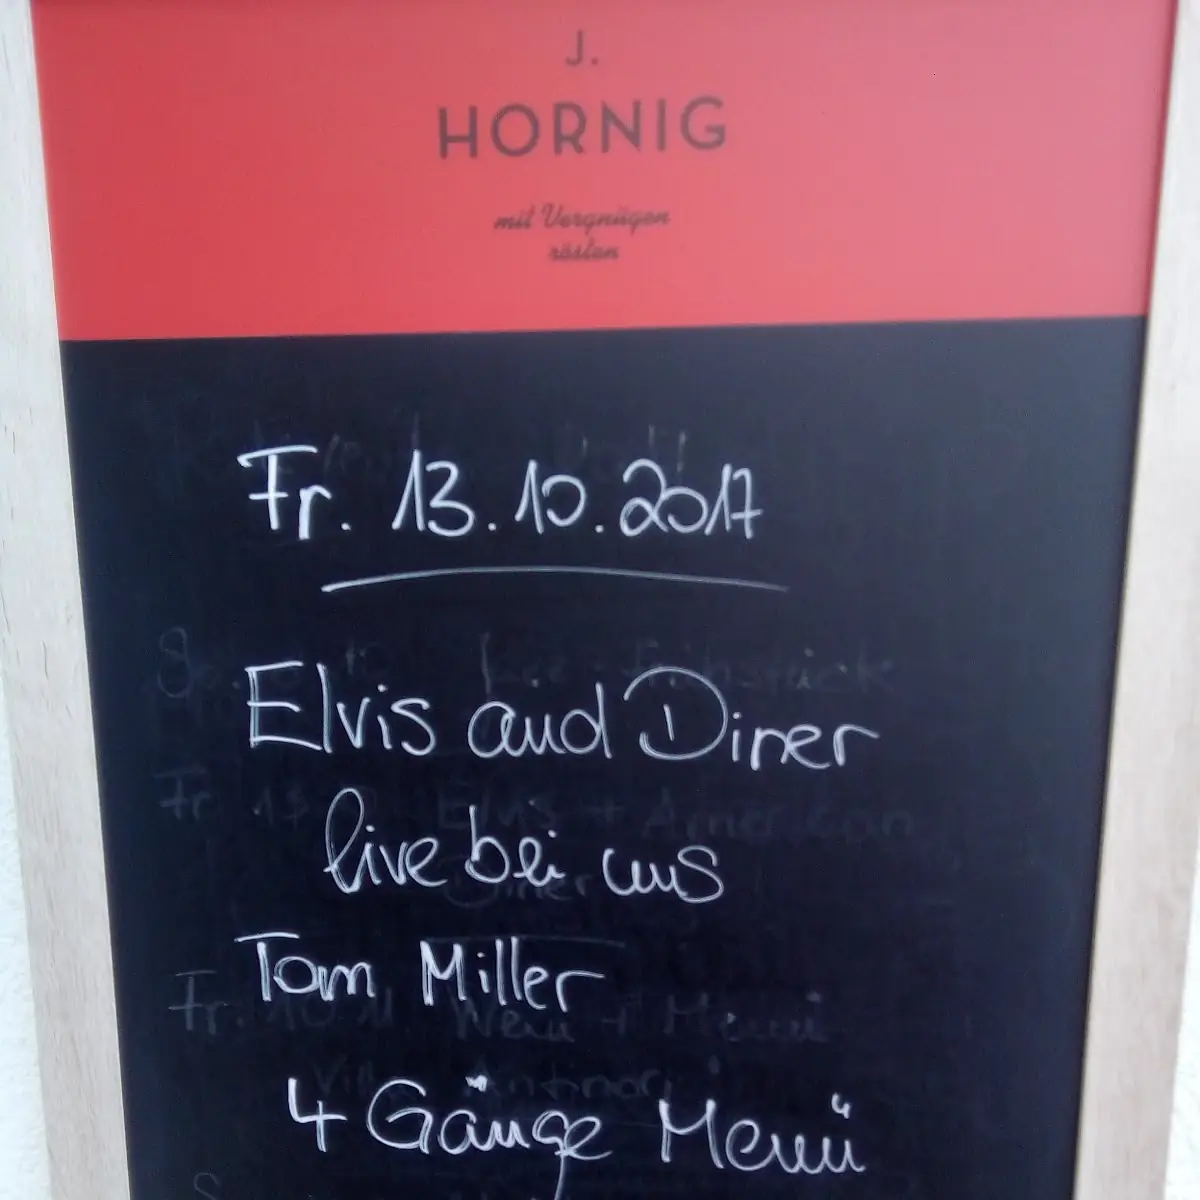 J.
HORNIG
mit Vergnügen
rösten
Fr. 13.10.2017
Elvis and Diner
live bei uns
Tom Miller
4 Gänge Menü